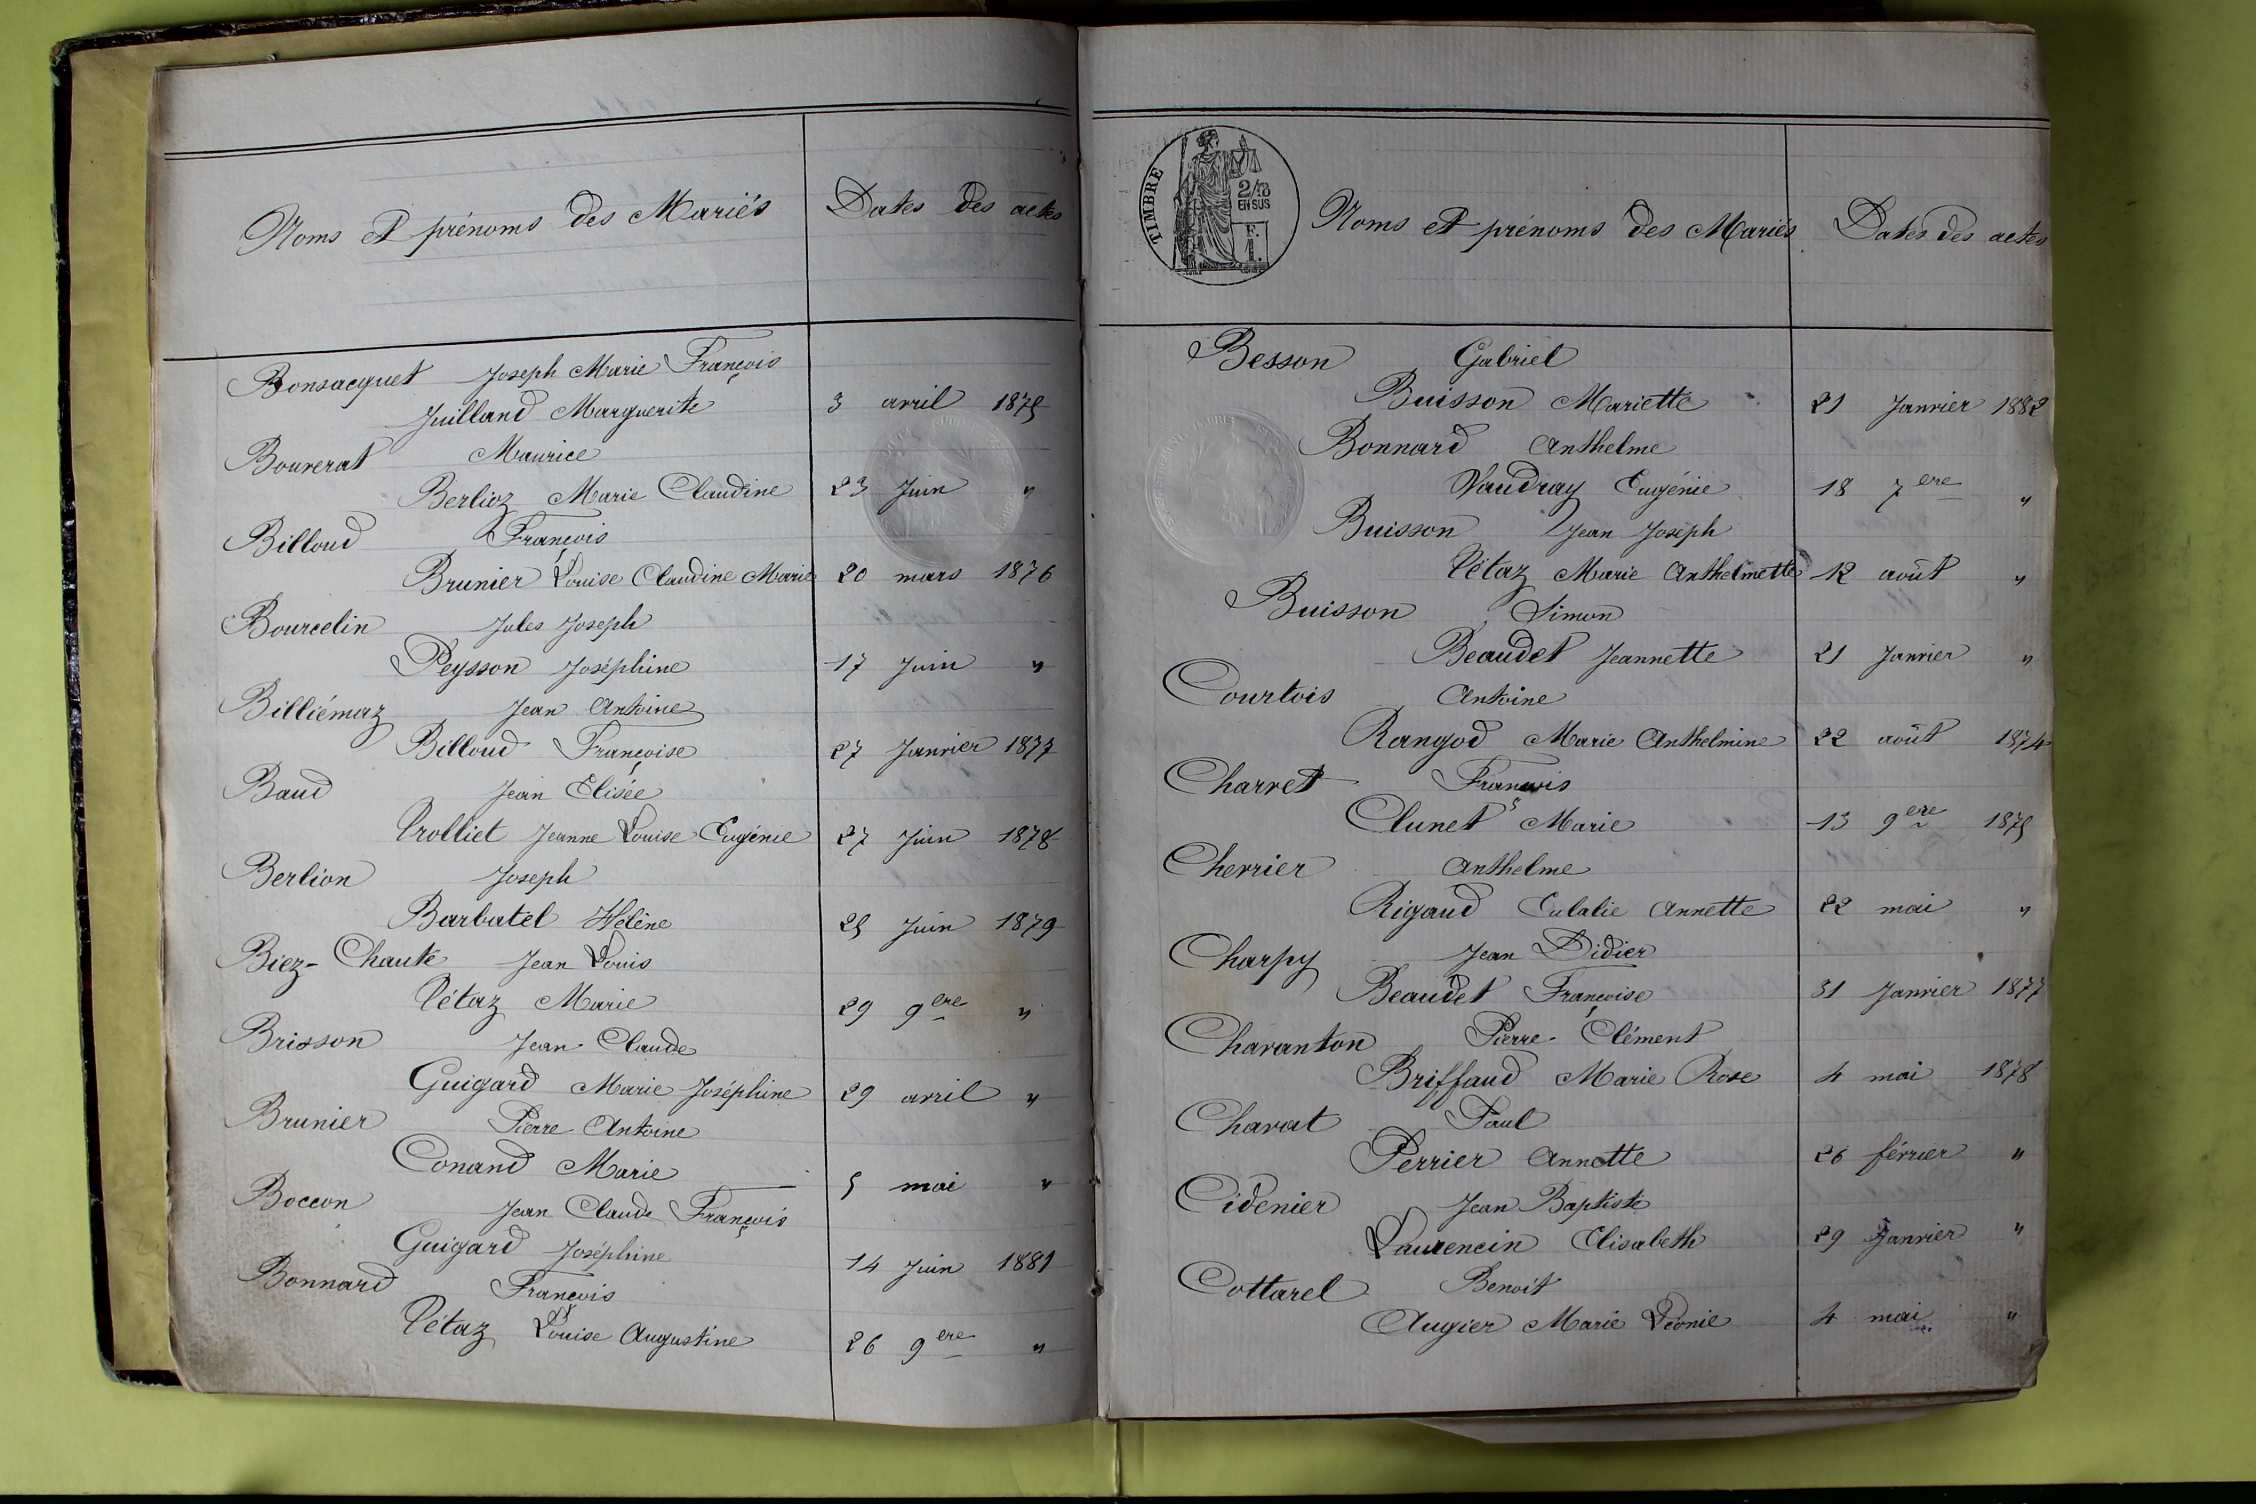 Noms et prénoms des Mariés
Dates des actes
Bonsacquet Joseph Marie François
Juilland Marguerite 3 avril 1875
Bouverat Maurice
Berlioz Marie Claudine 23 Juin "
Billoud François
Brunier Louise Claudine Marie 20 mars 1876
Bourcelin Jules Joseph
Peysson Joséphine 17 Juin "
Billiémaz Jean Antoine
Billoud Françoise 27 Janvier 1877
Baud Jean Elisée
Trolliet Jeanne Louise Eugénie 27 Juin 1878
Berlion Joseph
Barbatel Hélène 25 Juin 1879
Biez-Chauté Jean Louis
Pétaz Marie 29 9ere "
Brisson Jean Claude
Guigard Marie Joséphine 29 avril "
Brunier Pierre Antoine
Conand Marie 5 mai "
Boccon Jean Claude François
Guigard Joséphine 14 Juin 1881
Bonnard François
Pétaz Louise Augustine 26 9ere "
TIMBRE
2/10
EN SUS
F.
1.
Noms et prénoms des Mariés
Dates des actes
Besson Gabriel
Buisson Mariette 21 Janvier 1882
Bonnard Anthelme
Vaudray Eugénie 18 7ere "
Buisson Jean Joseph
Pétaz Marie Anthelmette 12 août "
Buisson Simon
Beaudet Jeannette 21 Janvier "
Courtois Antoine
Rangod Marie Anthelmine 22 août 1874
Charvet François
Clunet Marie 13 9ere 1875
Cherrier Anthelme
Rigaud Eulalie Annette 22 mai "
Charpy Jean Didier
Beaudet Françoise 31 Janvier 1877
Charanton Pierre-Clément
Briffaud Marie Rose 4 mai 1878
Charat Paul
Perrier Annette 26 février "
Cidenier Jean Baptiste
Laurencin Elisabeth 29 Janvier "
Cottarel Benoit
Augier Marie Léonie 4 mai "